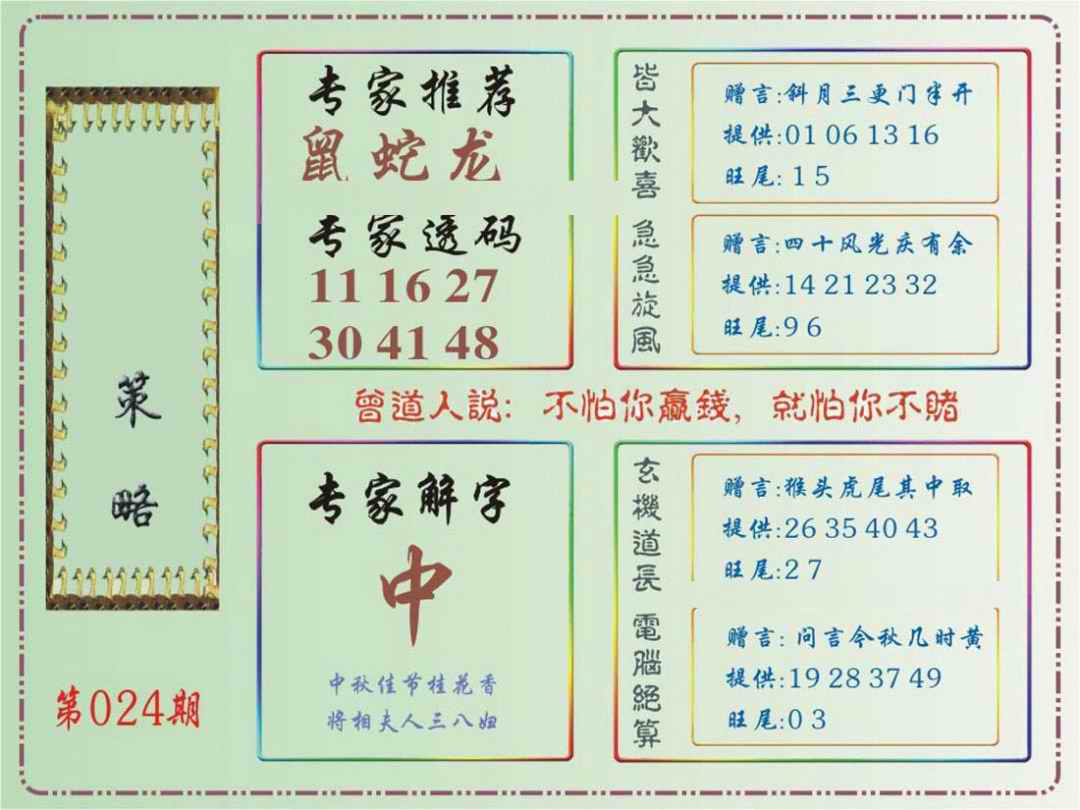 策略
第024期
专家推荐
鼠蛇龙
专家透码
11 16 27
30 41 48
皆大歡喜
赠言:斜月三更门半开
提供:01 06 13 16
旺尾:1 5
急急旋風
赠言:四十风光庆有余
提供:14 21 23 32
旺尾:9 6
曾道人説: 不怕你赢錢, 就怕你不賭
专家解字
中
中秋佳节桂花香
将相夫人三八妞
玄機道長
赠言:猴头虎尾其中取
提供:26 35 40 43
旺尾:2 7
電腦絕算
赠言: 问言今秋几时黄
提供:19 28 37 49
旺尾:0 3